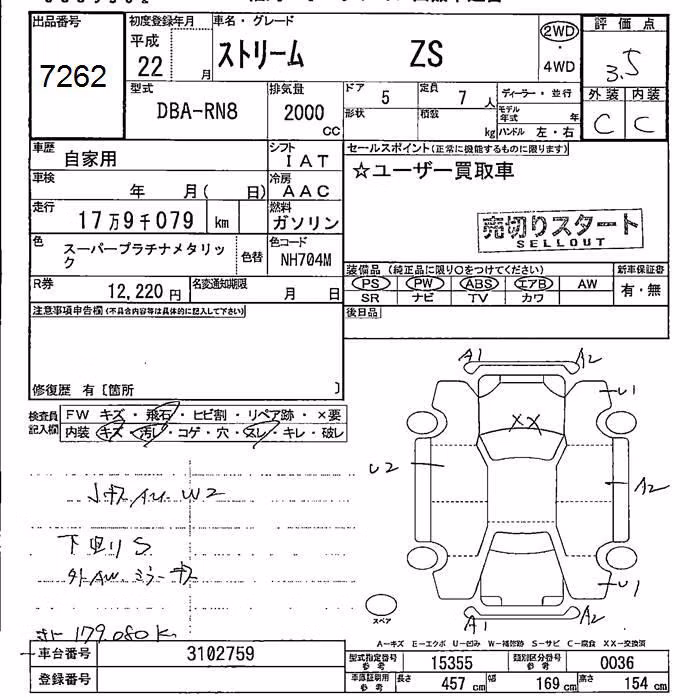 出品番号 初度登録年月 車名・グレード 評価点
7262 平成 22 月 ストリーム ZS 2WD・4WD 3.5
型式 排気量 ドア 定員 ディーラー・並行 外装 内装
DBA-RN8 2000 CC 5 7 人 C C
形状 積数 kg モデル年式 年 ハンドル 左・右
車歴 自家用 シフト IAT セールスポイント(正常に機能するものに限ります)
車検 年 月( 日) 冷房 AAC ☆ユーザー買取車
走行 17万9千079 km 燃料 ガソリン 売切りスタート
SELLOUT
色 スーパープラチナメタリック 色替 色コード NH704M
装備品(純正品に限り○をつけてください) 新車保証書
PS PW ABS エアB AW 有・無
SR ナビ TV カワ
R券 12,220円 名変通知期限 月 日 後日品
注意事項申告欄(不具合内容等は具体的に記入して下さい)
修復歴 有 [箇所 ]
検査員記入欄 FW キズ・飛石・ヒビ割・リペア跡・×要
内装 キズ・汚レ・コゲ・穴・スレ・キレ・破レ
A1 A2
U1
XX
U2 A2
AU W2
S
U1
179080K
スペア
A1 A2
A-キズ E-エクボ U-凹み W-補修跡 S-サビ C-腐食 XX-交換済
車台番号 3102759 型式指定番号 参考 15355 類別区分番号 参考 0036
登録番号 車庫証明用 参考 長さ 457 cm 幅 169 cm 高さ 154 cm